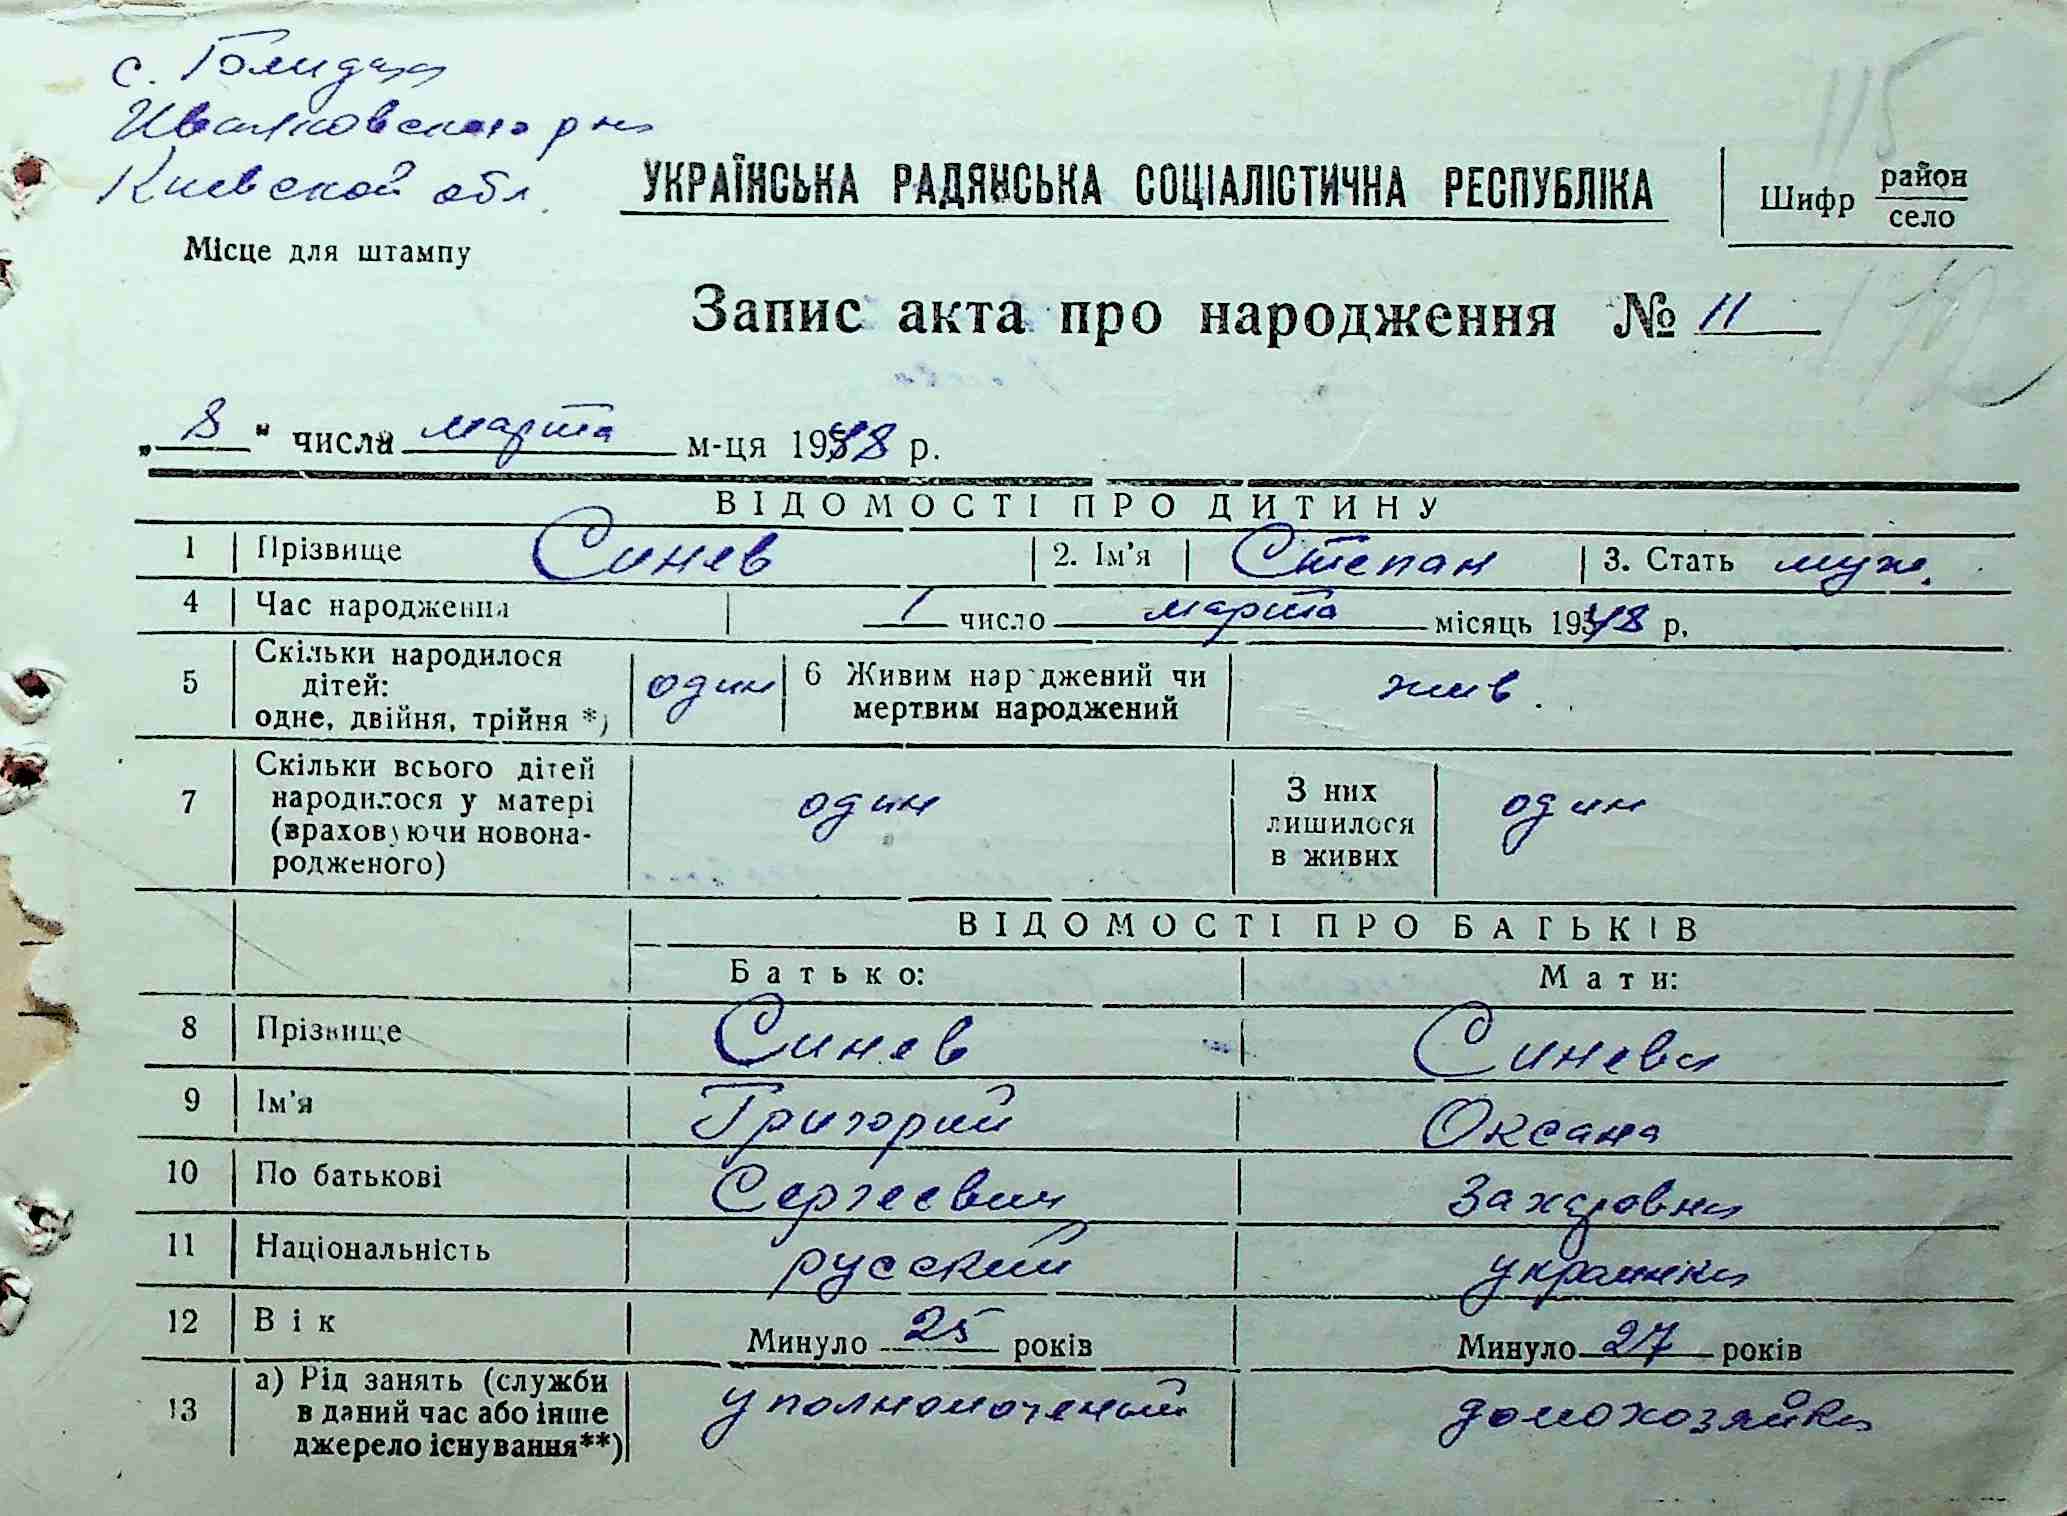 с. Голидра
Иванковского р на
Киевской обл.
115
УКРАЇНСЬКА РАДЯНСЬКА СОЦІАЛІСТИЧНА РЕСПУБЛІКА
Шифр район
село
Місце для штампу
Запис акта про народження № 11
„ 8 " числа марта м-ця 1948 р.
ВІДОМОСТІ ПРО ДИТИНУ
1 Прізвище Синев 2. Ім'я Степан 3. Стать муж.
4 Час народження 1 число марта місяць 1948 р.
5 Скільки народилося дітей: одне, двійня, трійня *) один 6 Живим народжений чи мертвим народжений жив.
7 Скільки всього дітей народилося у матері (враховуючи новонародженого) один З них лишилося в живих один
ВІДОМОСТІ ПРО БАТЬКІВ
Батько: Мати:
8 Прізвище Синев Синева
9 Ім'я Григорий Оксана
10 По батькові Сергеевич Захаровна
11 Національність русский украинка
12 Вік Минуло 25 років Минуло 27 років
13 а) Рід занять (служби в даний час або інше джерело існування**) уполномоченый домохозяйка